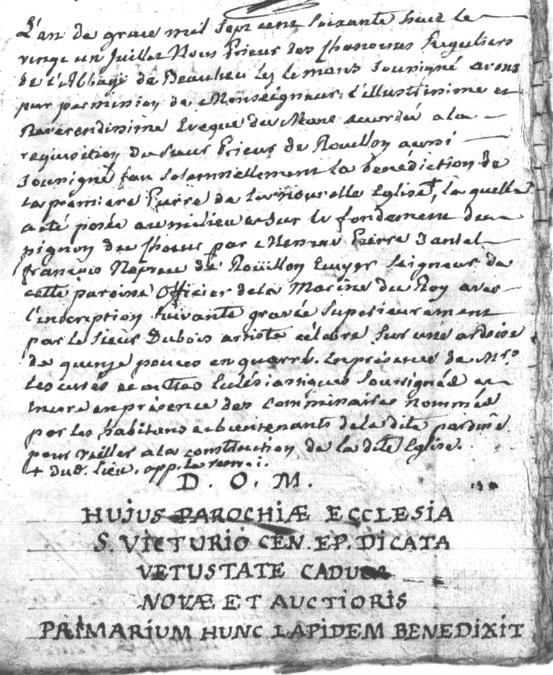 L'an de grace mil Sept cent Soixante huit le
vingt un Juillet Nous Prieur des Chanoines Reguliers
de l'Abbaye de Beaulieu Les le mans Soussigné avons
par permission de Monseigneur l'illustrissime et
Reverendissime Eveque du Mans accordée a la
requisition du Sieur Prieur de Rouillon aussi
Soussigné fait Solemnellement la benediction de
la premiere Pierre de la nouvelle Eglise+, la quelle
a été posée au milieu et Sur le fondement du
pignon du Choeur par Messire Pierre
françois Nepveu de Roüillon Ecuyer Seigneur de
cette paroisse Officier de la Marine du Roy avec
l'inscription Suivante gravée Superieurement
par le Sieur Dubois artiste célebre Sur une ardoise
de quinze pouces en quarré. En présence de Mrs
Les curés et autres Ecclésiastiques Soussignés et
encore en présence des Commissaires nommés
par les habitans et bientenants de la dite paroisse
pour veiller a la construction de la dite Eglise.
+ dud. lieu. app.
D. O. M.
HUJUS PAROCHIÆ ECCLESIA
S. VICTURIO CEN. EP. DICATA
VETUSTATE CADUCA
NOVÆ ET AUCTIORIS
PRIMARIUM HUNC LAPIDEM BENEDIXIT